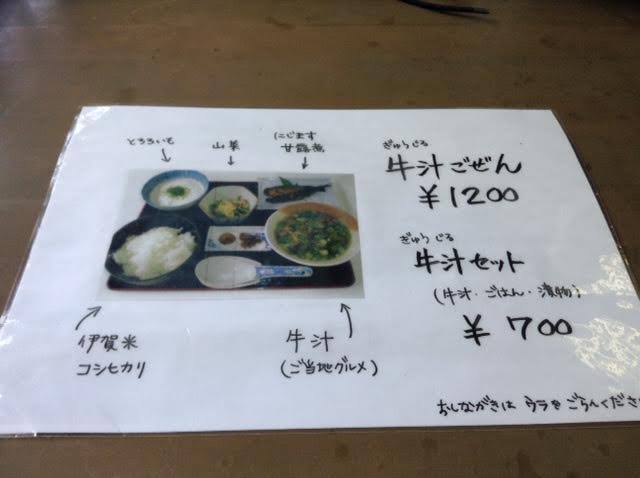 とろろいも
山菜
にじます
甘露煮
ぎゅうじる
牛汁ごぜん
¥1200
ぎゅうじる
牛汁セット
(牛汁・ごはん・漬物)
¥700
伊賀米
コシヒカリ
牛汁
(ご当地グルメ)
おしながきは ウラをごらんくださ